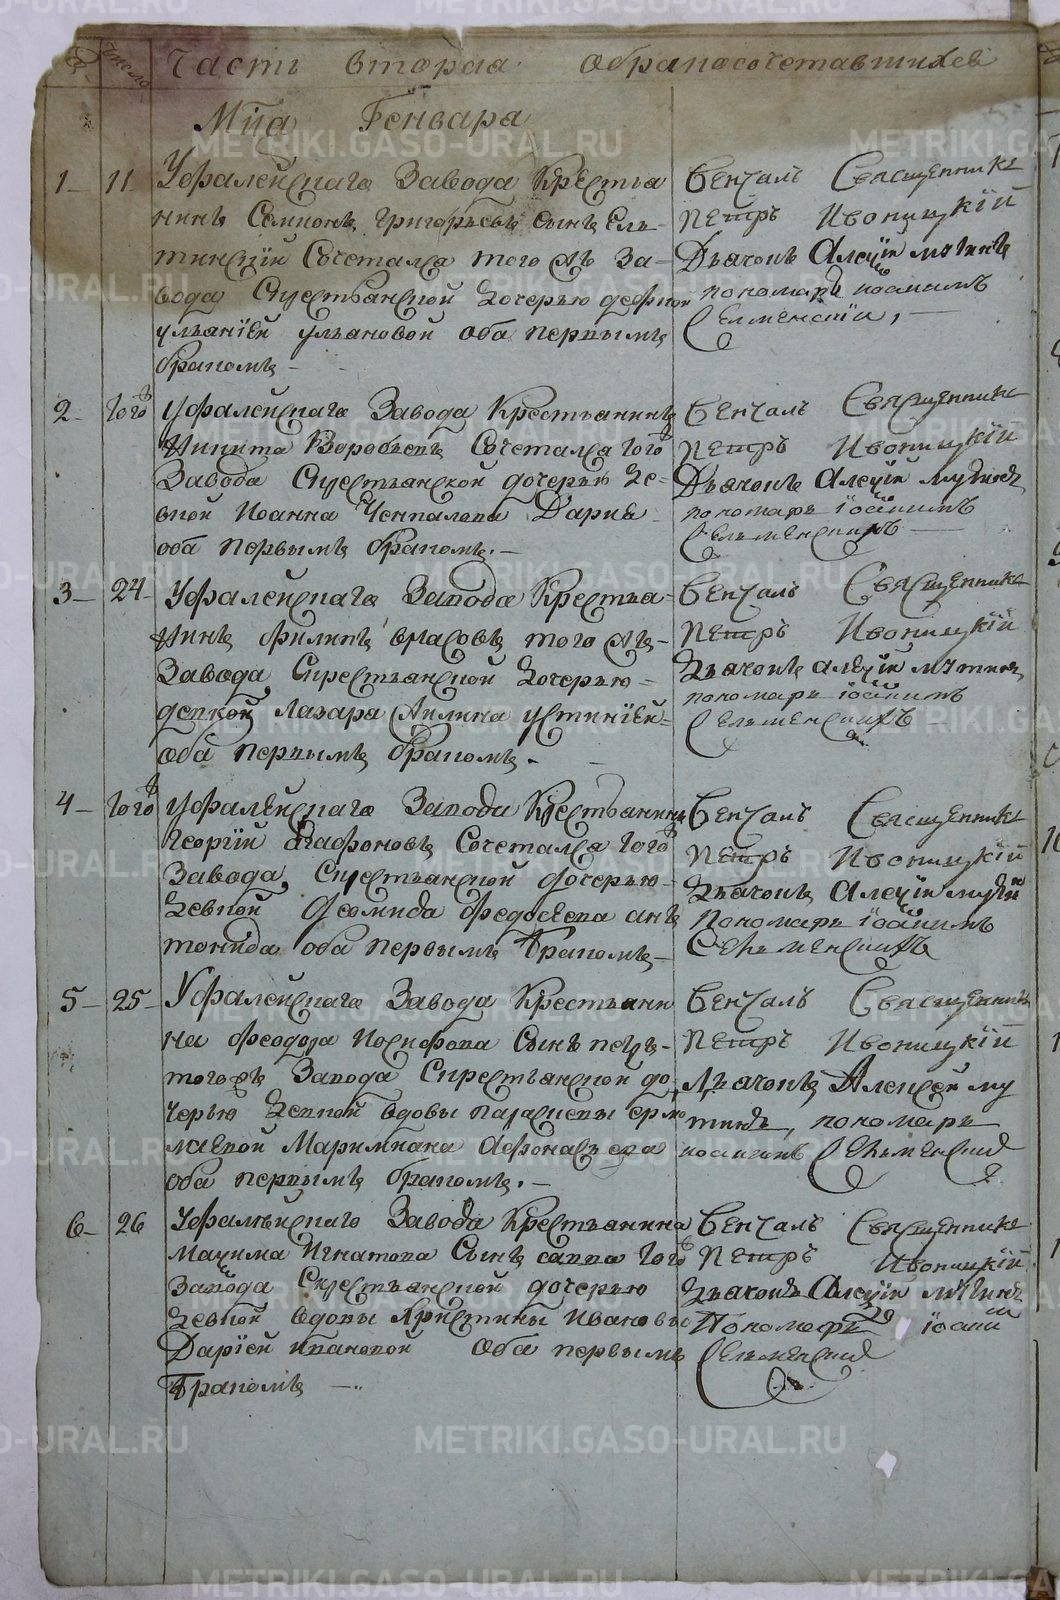 № Число Часть вторая обракосочетавшихся
Мца Генваря
1 11 Уфалейскаго Завода Крестья
нинъ Семионъ Григорьевъ сынъ Ель
тинский Сочетался того жъ За-
вода Скрестьянской дочерью девкой
ульяніей ульяновой оба первымъ
бракомъ
Венчалъ Священникъ
Петръ Ивоницкій
Дьячокъ Алеѯій мутинъ
пономарь иоакимъ
Селменскій
2 Того Уфалейскаго Завода Крестьянинъ
Никита Воробьевъ Сочетался того
Завода Скрестьянской дочерью де-
вкой Иоанна Чепкалова Дарья
оба первымъ бракомъ.
Венчалъ Священникъ
Петръ Ивоницкій
Дьячокъ Алеѯій мутинъ
пономарь іоакимъ
Селеменскихъ
3 24 Уфалейскаго Завода Крестья-
нинъ филипъ власовъ того жъ-
Завода Скрестьянской дочерью
девкой Лазара Аилина устиніей
оба первымъ бракомъ.
Венчалъ Священникъ
Петръ Ивоницкій
Дьячокъ алеѯій мутинъ
пономарь іоакимъ
Сельменскихъ
4 Того Уфалейскаго Завода Крестьянинъ
Георгий агафоновъ Сочетался того
Завода Скрестьянской дочерью
девкой феомида федосеева ан
тонида оба первымъ бракомъ
Венчалъ Священникъ
Петръ Ивоницкій
Дьячокъ Алеѯій мутин
пономарь іоакимъ
Селеменскихъ
5 25 Уфалейскаго Завода Крестьяни
на феодора Иосифова Сынъ петръ
тогожъ Завода Скрестьянской до
черью девкой вдовы параскевы ермо
лаевой Маримиана Афонасьева
оба первымъ бракомъ.
Венчалъ Священникъ
Петръ Ивоницкій
Дьячокъ Алексей му
тинъ, пономарь
иоакимъ Селеменский
6 26 Уфалейскаго Завода Крестьянина
Маѯима Игнатова Сынъ савва того
Завода Скрестьянской дочерью
девкой вдовы Христины Ивановы
Даріей ивановой Оба первымъ
бракомъ
Венчалъ Священникъ
Петръ Ивоницкій
Дьячокъ Алеѯій мутинъ
Пономарь іоаки
Сельменский
METRIKI.GASO-URAL.RU